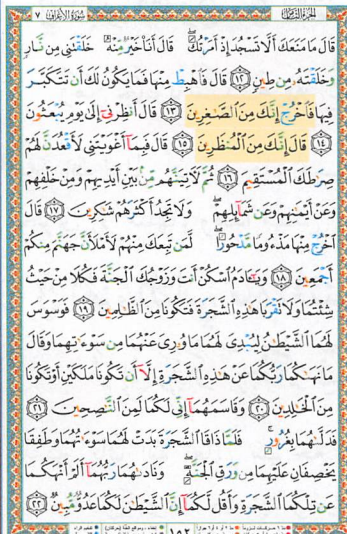 الجزء الثامن سورة الأعراف ٧
قَالَ مَا مَنَعَكَ أَلَّا تَسْجُدَ إِذْ أَمَرْتُكَ ۖ قَالَ أَنَا۠ خَيْرٌ مِّنْهُ خَلَقْتَنِى مِن نَّارٍ
وَخَلَقْتَهُۥ مِن طِينٍ ١٢ قَالَ فَٱهْبِطْ مِنْهَا فَمَا يَكُونُ لَكَ أَن تَتَكَبَّرَ
فِيهَا فَٱخْرُجْ إِنَّكَ مِنَ ٱلصَّـٰغِرِينَ ١٣ قَالَ أَنظِرْنِىٓ إِلَىٰ يَوْمِ يُبْعَثُونَ
١٤ قَالَ إِنَّكَ مِنَ ٱلْمُنظَرِينَ ١٥ قَالَ فَبِمَآ أَغْوَيْتَنِى لَأَقْعُدَنَّ لَهُمْ
صِرَٰطَكَ ٱلْمُسْتَقِيمَ ١٦ ثُمَّ لَـَٔاتِيَنَّهُم مِّنۢ بَيْنِ أَيْدِيهِمْ وَمِنْ خَلْفِهِمْ
وَعَنْ أَيْمَـٰنِهِمْ وَعَن شَمَآئِلِهِمْ ۖ وَلَا تَجِدُ أَكْثَرَهُمْ شَـٰكِرِينَ ١٧ قَالَ
ٱخْرُجْ مِنْهَا مَذْءُومًا مَّدْحُورًا ۖ لَّمَن تَبِعَكَ مِنْهُمْ لَأَمْلَأَنَّ جَهَنَّمَ مِنكُمْ
أَجْمَعِينَ ١٨ وَيَـٰٓـَٔادَمُ ٱسْكُنْ أَنتَ وَزَوْجُكَ ٱلْجَنَّةَ فَكُلَا مِنْ حَيْثُ
شِئْتُمَا وَلَا تَقْرَبَا هَـٰذِهِ ٱلشَّجَرَةَ فَتَكُونَا مِنَ ٱلظَّـٰلِمِينَ ١٩ فَوَسْوَسَ
لَهُمَا ٱلشَّيْطَـٰنُ لِيُبْدِىَ لَهُمَا مَا وُۥرِىَ عَنْهُمَا مِن سَوْءَٰتِهِمَا وَقَالَ
مَا نَهَىٰكُمَا رَبُّكُمَا عَنْ هَـٰذِهِ ٱلشَّجَرَةِ إِلَّآ أَن تَكُونَا مَلَكَيْنِ أَوْ تَكُونَا
مِنَ ٱلْخَـٰلِدِينَ ٢٠ وَقَاسَمَهُمَآ إِنِّى لَكُمَا لَمِنَ ٱلنَّـٰصِحِينَ ٢١
فَدَلَّىٰهُمَا بِغُرُورٍ ۚ فَلَمَّا ذَاقَا ٱلشَّجَرَةَ بَدَتْ لَهُمَا سَوْءَٰتُهُمَا وَطَفِقَا
يَخْصِفَانِ عَلَيْهِمَا مِن وَرَقِ ٱلْجَنَّةِ ۖ وَنَادَىٰهُمَا رَبُّهُمَآ أَلَمْ أَنْهَكُمَا
عَن تِلْكُمَا ٱلشَّجَرَةِ وَأَقُل لَّكُمَآ إِنَّ ٱلشَّيْطَـٰنَ لَكُمَا عَدُوٌّ مُّبِينٌ ٢٢
١٥٢